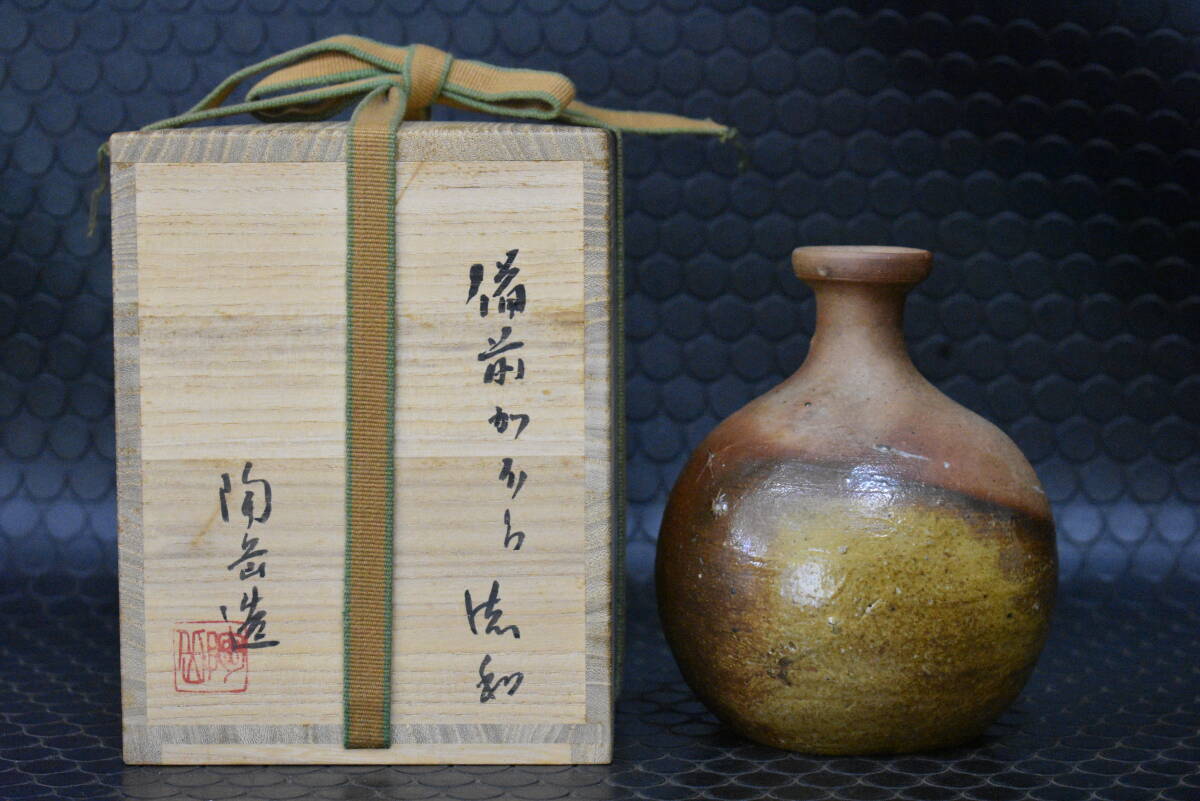 備前かぶら徳利
陶岳造